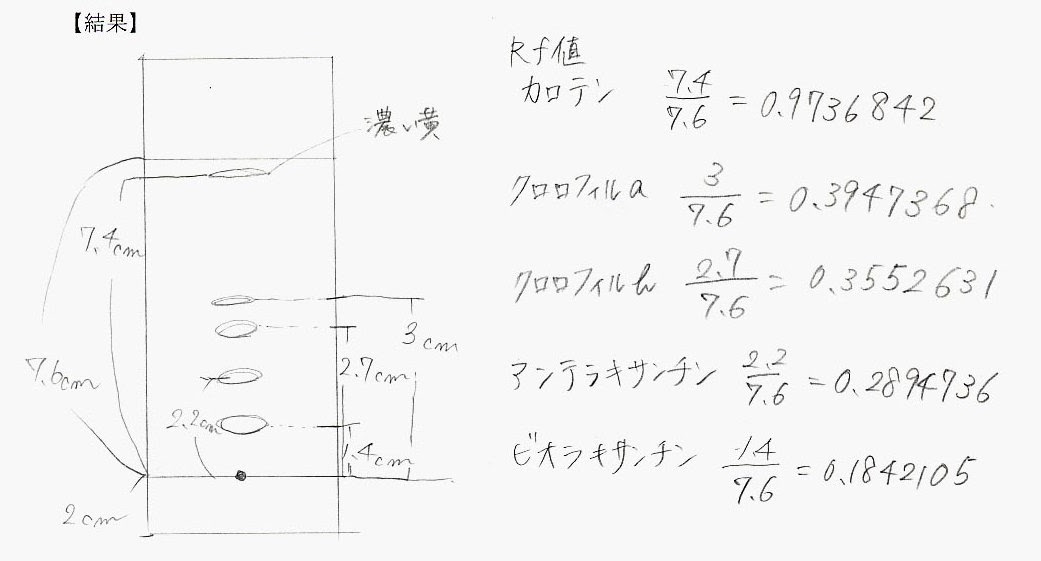 【結果】
濃い黄
7.4cm
7.6cm
3cm
2.7cm
2.2cm
1.4cm
2cm
Rf値
カロテン 7.4/7.6 = 0.9736842
クロロフィルa 3/7.6 = 0.3947368
クロロフィルb 2.7/7.6 = 0.3552631
アンテラキサンチン 2.2/7.6 = 0.2894736
ビオラキサンチン 1.4/7.6 = 0.1842105